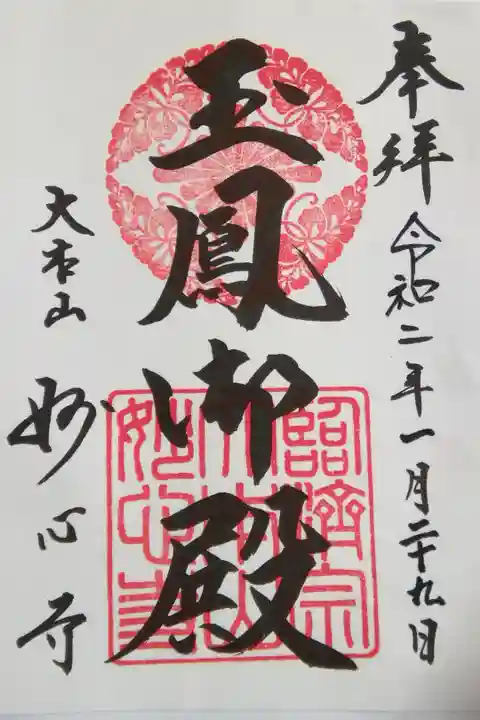 奉拝 令和二年一月二十九日
玉鳳御殿
大本山 妙心寺
臨済宗
大本山
妙心寺